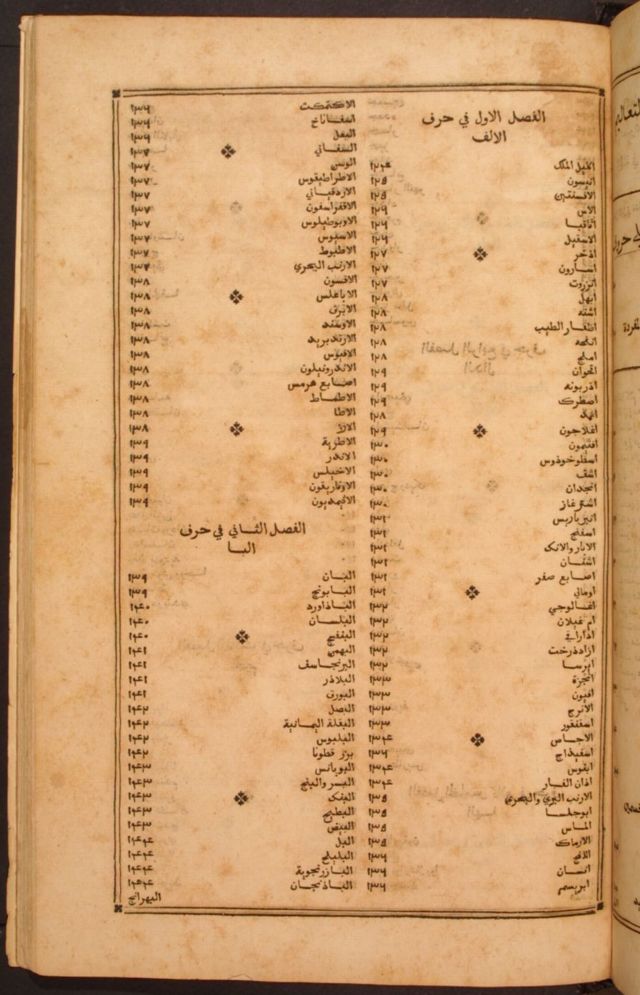 الفصل الاول في حرف
الالف
اكليل الملك ١٢٤
انيسون ١٢٥
الافسنتين ١٢٥
الاس ١٢٦
اقاقيا ١٢٦
الاسفيل ١٢٦
اذخر ١٢٧
اسارون ١٢٧
انزروت ١٢٧
ابهل ١٢٨
اشنه ١٢٨
اظفار الطيب ١٢٨
انفحه ١٢٨
املج ١٢٨
اقحوان ١٢٩
اذربونه ١٢٩
اصطرك ١٢٩
اثمد ١٢٨
افلاجون ١٢٩
افثيمون ١٣٠
اسطوخوذوس ١٣٠
اشق ١٣٠
انجدان ١٣٠
اشترغاز ١٣٠
انبرباريس ١٣١
اسفنج ١٣١
الابار والانك ١٣١
اشقان ١٣١
اصابع صفر ١٣١
اوماني ١٣١
اغالوجي ١٣٢
ام غيلان ١٣٢
اذاراقي ١٣٢
ازادذرخت ١٣٢
ايرسا ١٣٢
انجرة ١٣٣
افيون ١٣٣
الاترج ١٣٣
اسفنقور ١٣٣
الاجاص ١٣٤
اسفيداج ١٣٤
ابنوس ١٣٤
اذان الفار ١٣٤
الارنب البري والبحري ١٣٥
ابوجلسا ١٣٥
الماس ١٣٥
الارماك ١٣٥
اللافح ١٣٦
انسان ١٣٦
ابريسم ١٣٦
الاكتمكت ١٣٦
اسفاناخ ١٣٦
السفاني ١٣٧
الوسن ١٣٧
الاطراطيقوس ١٣٧
الازدفياني ١٣٧
الافقراسقون ١٣٧
الاوبوطيلوس ١٣٧
الاسيوس ١٣٧
الاطيوط ١٣٧
الارنب البحري ١٣٧
الاقسون ١٣٨
الاباغلس ١٣٨
الابرق ١٣٨
الاوسفند ١٣٨
الارتدبريد ١٣٨
الاقيوس ١٣٨
الاندروثيلون ١٣٨
اصابع هرمس ١٣٨
الاطماط ١٣٨
الاطا ١٣٨
الارز ١٣٨
الاطرية ١٣٩
الاندر ١٣٩
الاخيلس ١٣٩
الاوفاريقون ١٣٩
الاقيمديون ١٣٩
الفصل الثاني في حرف
البا
البان ١٣٩
البابونج ١٣٩
الباذاورد ١٤٠
البلسان ١٤٠
البنفسج ١٤٠
البهمن ١٤١
البرنجاسف ١٤١
البلاذر ١٤١
البورق ١٤١
البصل ١٤٢
البقلة اليمانية ١٤٢
البلبوس ١٤٢
بزر قطونا ١٤٢
البوبانس ١٤٣
البسر والبلح ١٤٣
البنك ١٤٣
البطيخ ١٤٣
البيض ١٤٣
البل ١٤٤
البليلج ١٤٤
البازرنجوية ١٤٤
الباذنجان ١٤٤
البهرامج